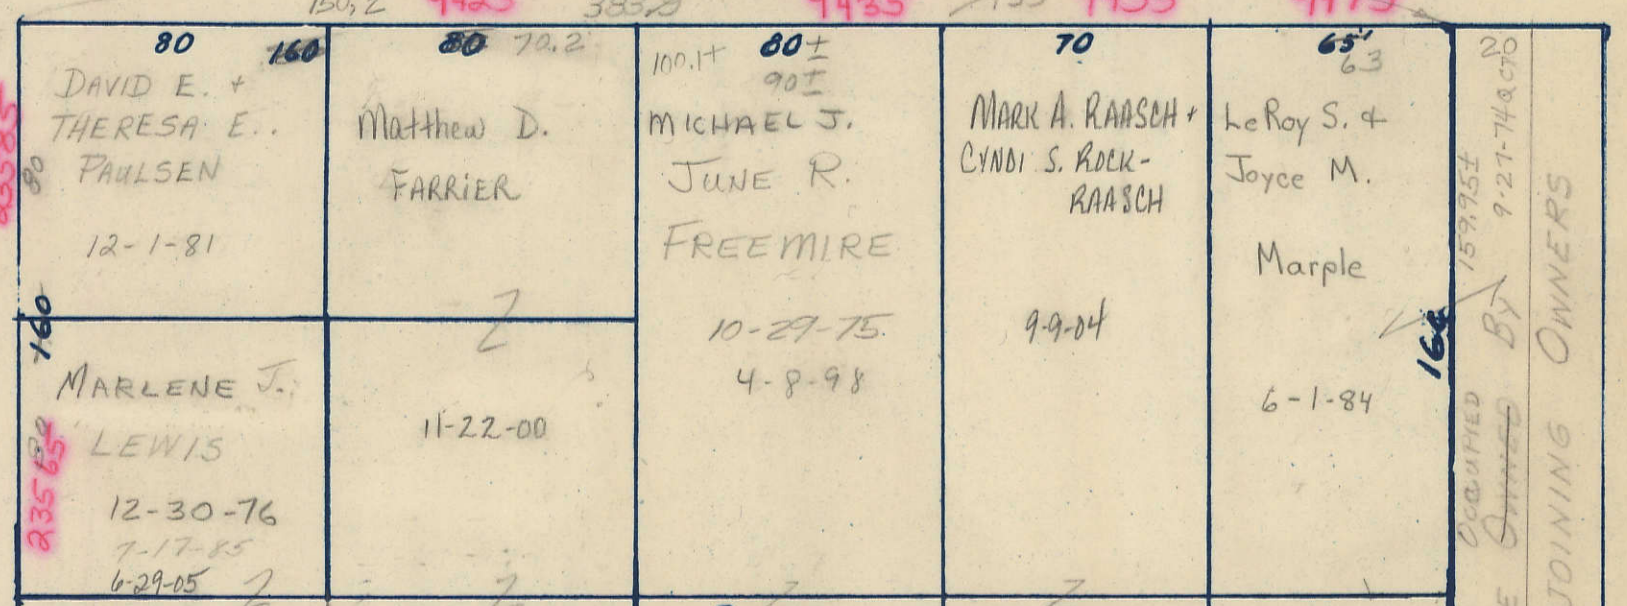 9425
9435
9455
9475
80
160
DAVID E. +
THERESA E..
PAULSEN
80
12-1-81
160
MARLENE J.
LEWIS
80
23565
12-30-76
7-17-85
6-29-05
80 70.2
Matthew D.
FARRIER
11-22-00
100.1± 80±
90±
MICHAEL J.
JUNE R.
FREEMIRE
10-29-75.
4-8-98
70
MARK A. RAASCH +
CYNDI S. ROCK-
RAASCH
9-9-04
65'
63
LeRoy S. &
Joyce M.
Marple
6-1-84
159.95±
20
9-27-74 QCD
OCCUPIED
OWNED BY
JOINING OWNERS